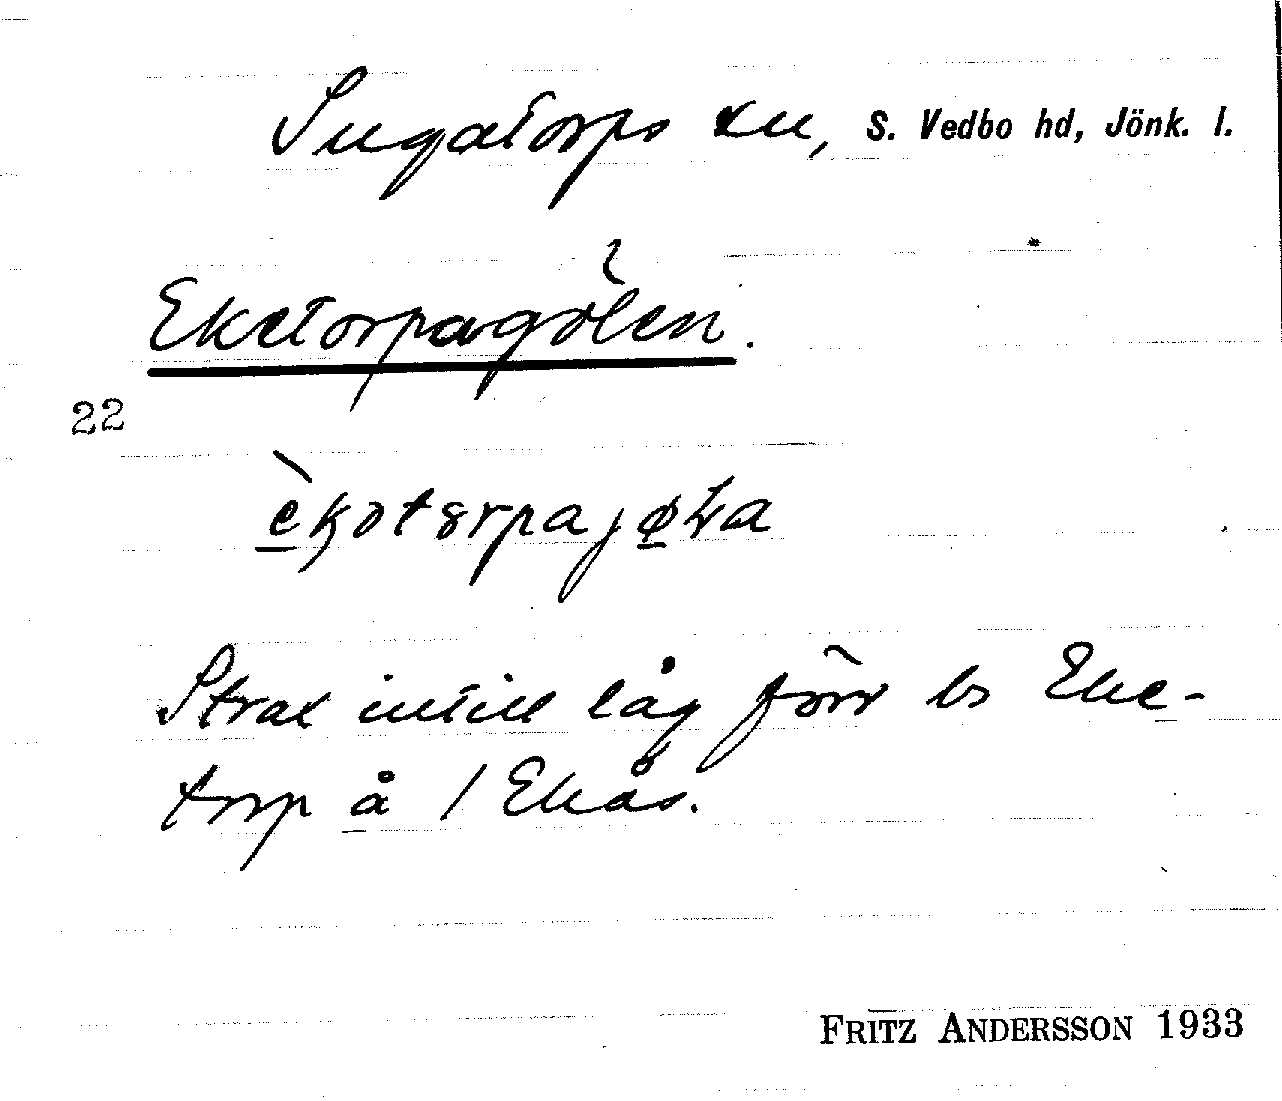 Ingatorps sn, S. Vedbo hd, Jönk. l.
Eketorpagölen.
22
Strax intill låg förr bs Eke-
torp å 1 Ekås.
FRITZ ANDERSSON 1933